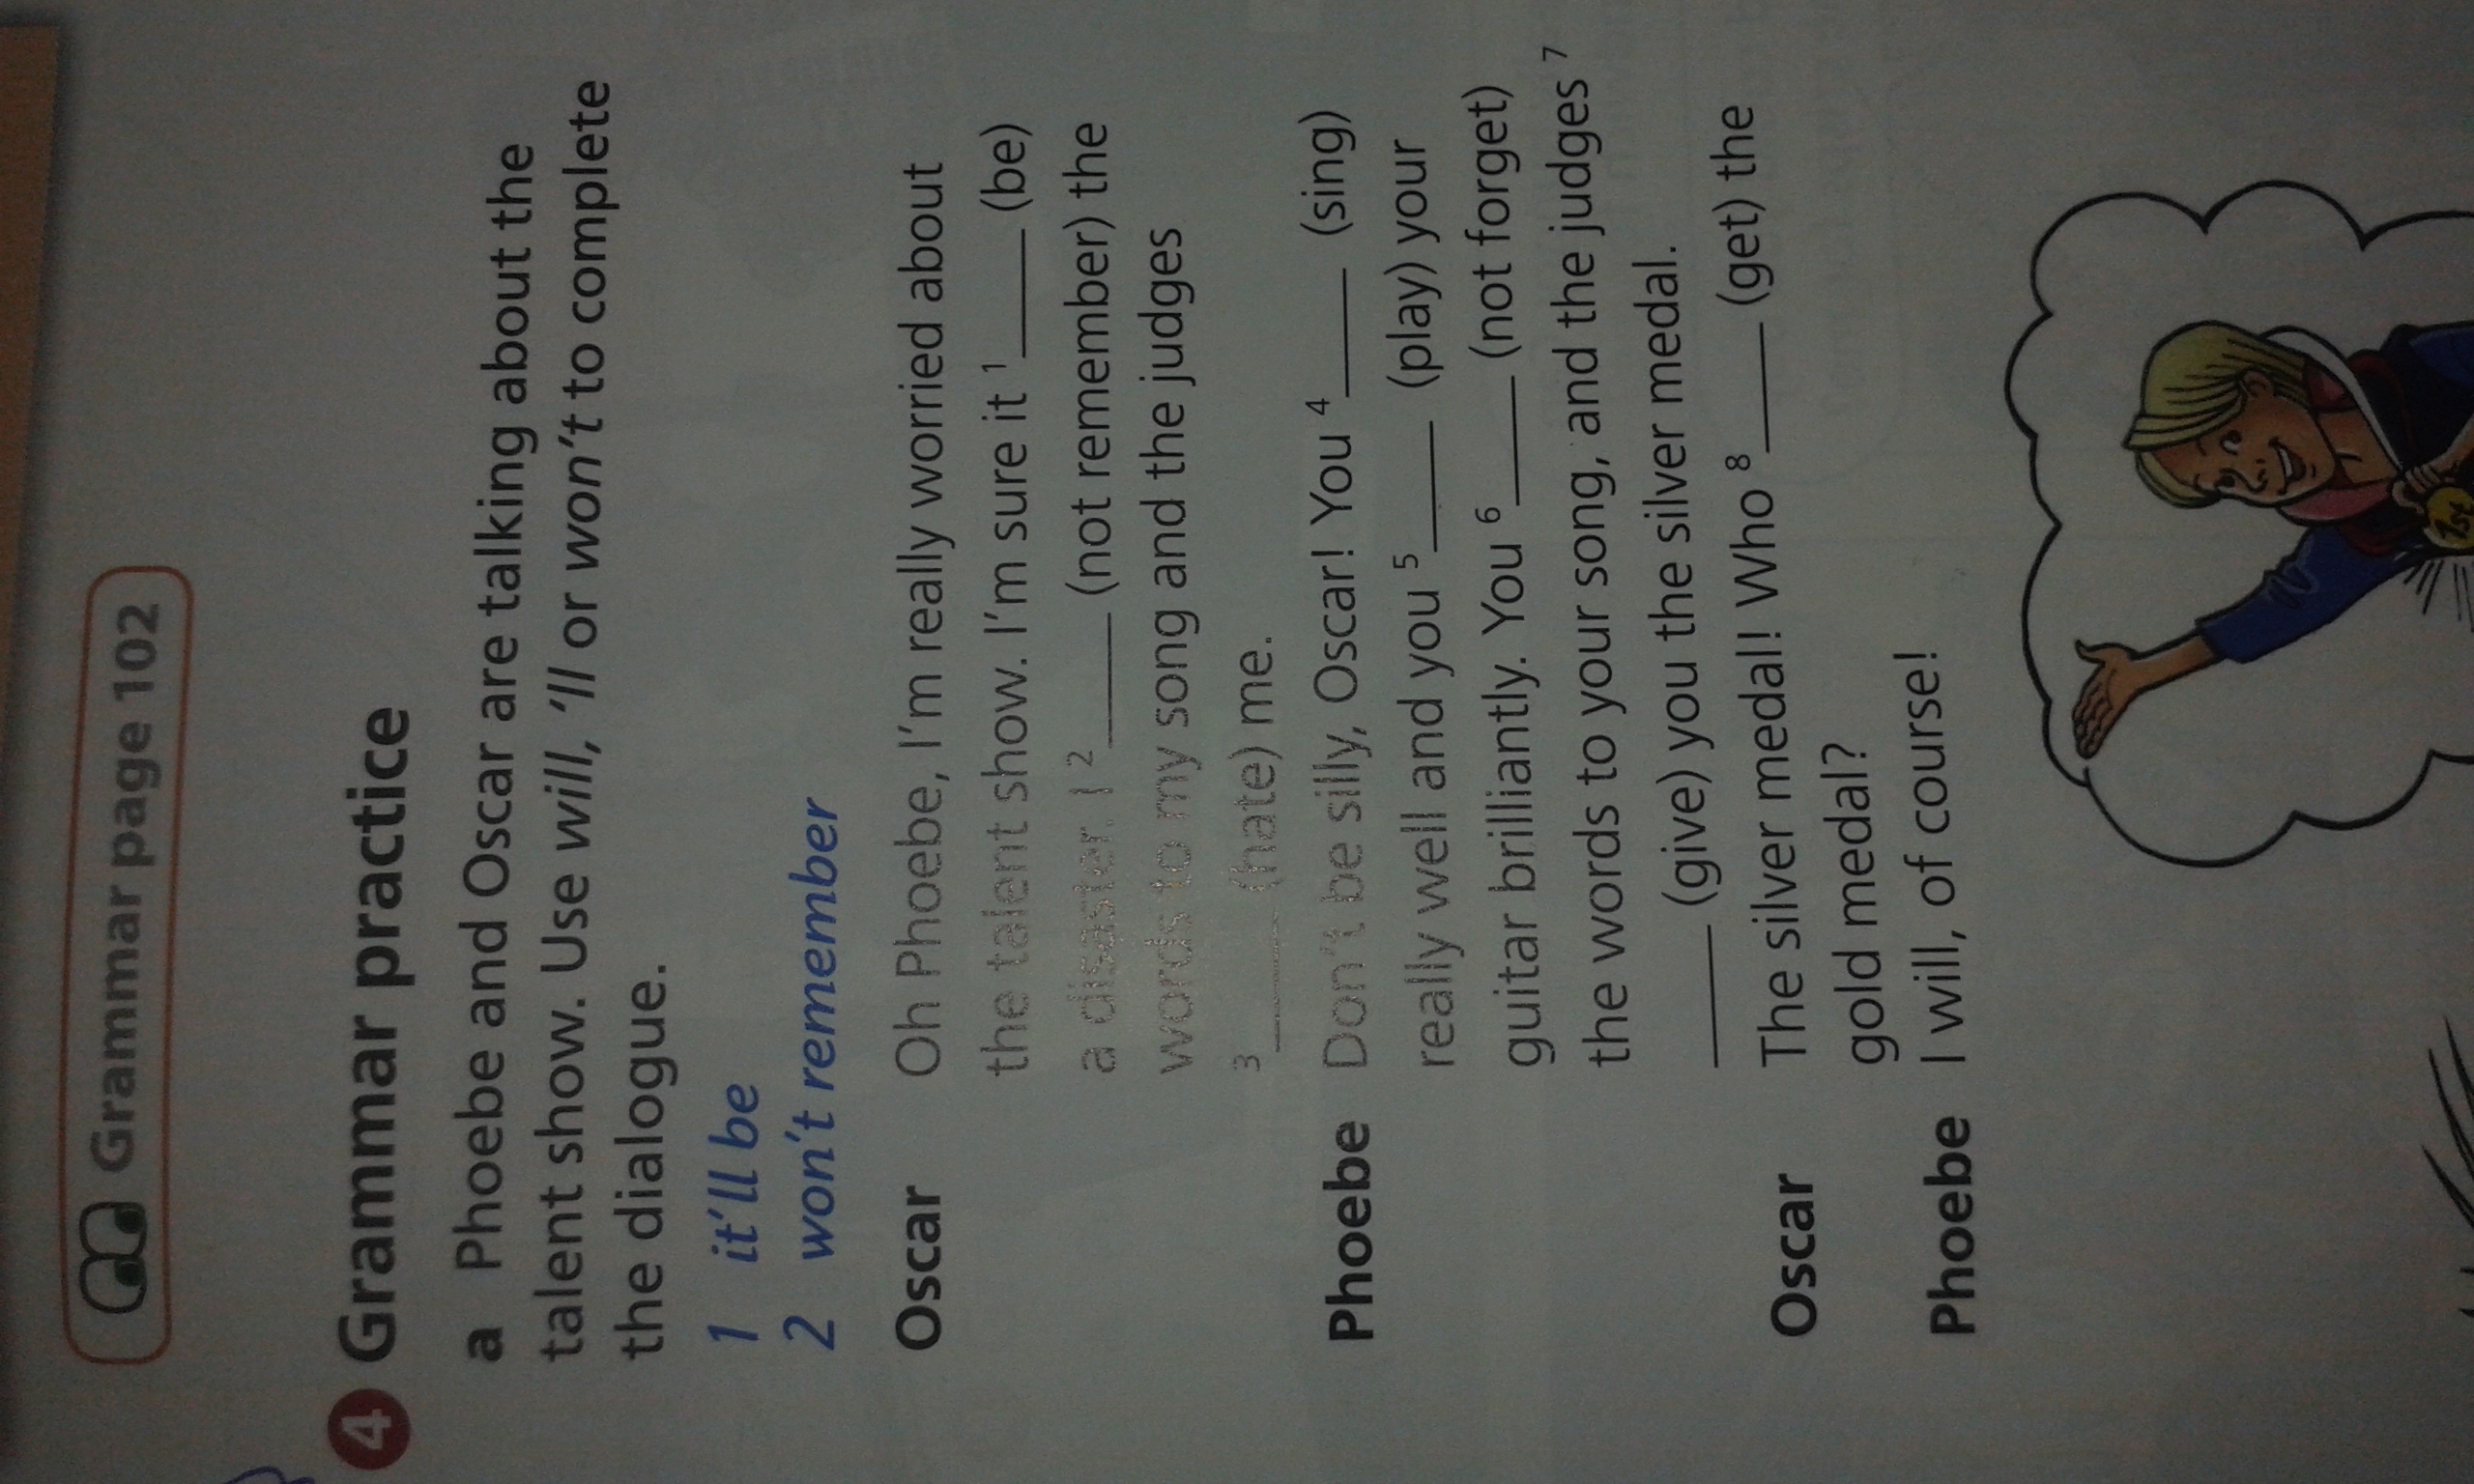 Grammar page 102
4 Grammar practice
a Phoebe and Oscar are talking about the
talent show. Use will, 'll or won't to complete
the dialogue.
1 it'll be
2 won't remember
Oscar Oh Phoebe, I'm really worried about
the talent show. I'm sure it 1____ (be)
a disaster. I 2____ (not remember) the
words to my song and the judges
3____ (hate) me.
Phoebe Don't be silly, Oscar! You 4____ (sing)
really well and you 5____ (play) your
guitar brilliantly. You 6____ (not forget)
the words to your song, and the judges 7
____ (give) you the silver medal.
Oscar The silver medal! Who 8____ (get) the
gold medal?
Phoebe I will, of course!
1st